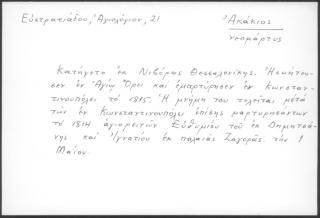 Εὐστρατιάδου, Ἁγιολόγιον, 21
Ἀκάκιος
νεομάρτυς
Κατήγετο ἐκ Νιβόρης Θεσσαλονίκης. Ἠσκήτευ-
σεν ἐν Ἁγίῳ Ὄρει καὶ ἐμαρτύρησεν ἐν Κωνστα-
ντινουπόλει τὸ 1815. Ἡ μνήμη του τελεῖται μετὰ
τῶν ἐν Κωνσταντινουπόλει ἐπίσης μαρτυρησάντων
τὸ 1814 ἁγιορειτῶν Εὐθυμίου τοῦ ἐκ Δημητσά-
νης καὶ Ἰγνατίου ἐκ παλαιᾶς Ζαγορᾶς, τὴν 1
Μαΐου.